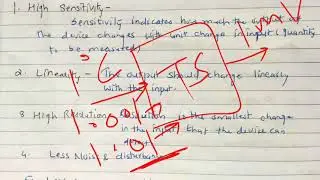 1. High Sensitivity -
Sensitivity indicates how much the output of
the device changes with unit change in input (quantity
to be measured)
2. Linearity - The output should change linearly
with the input.
3. High Resolution - Resolution is the smallest change
in the input that the device can
4. Less Noise & disturbance
°C
TS
1 mV
1
1.001
1.01